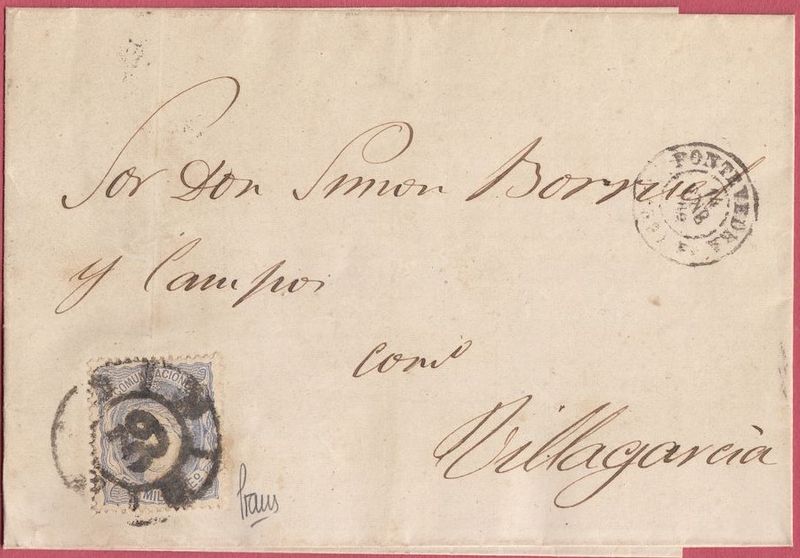 Sor Don Simon Borruel
y Campos
com.º
Villagarcia
PONTEVEDRA
ENE
COMUNICACIONES
MILS Eº
62
Graus